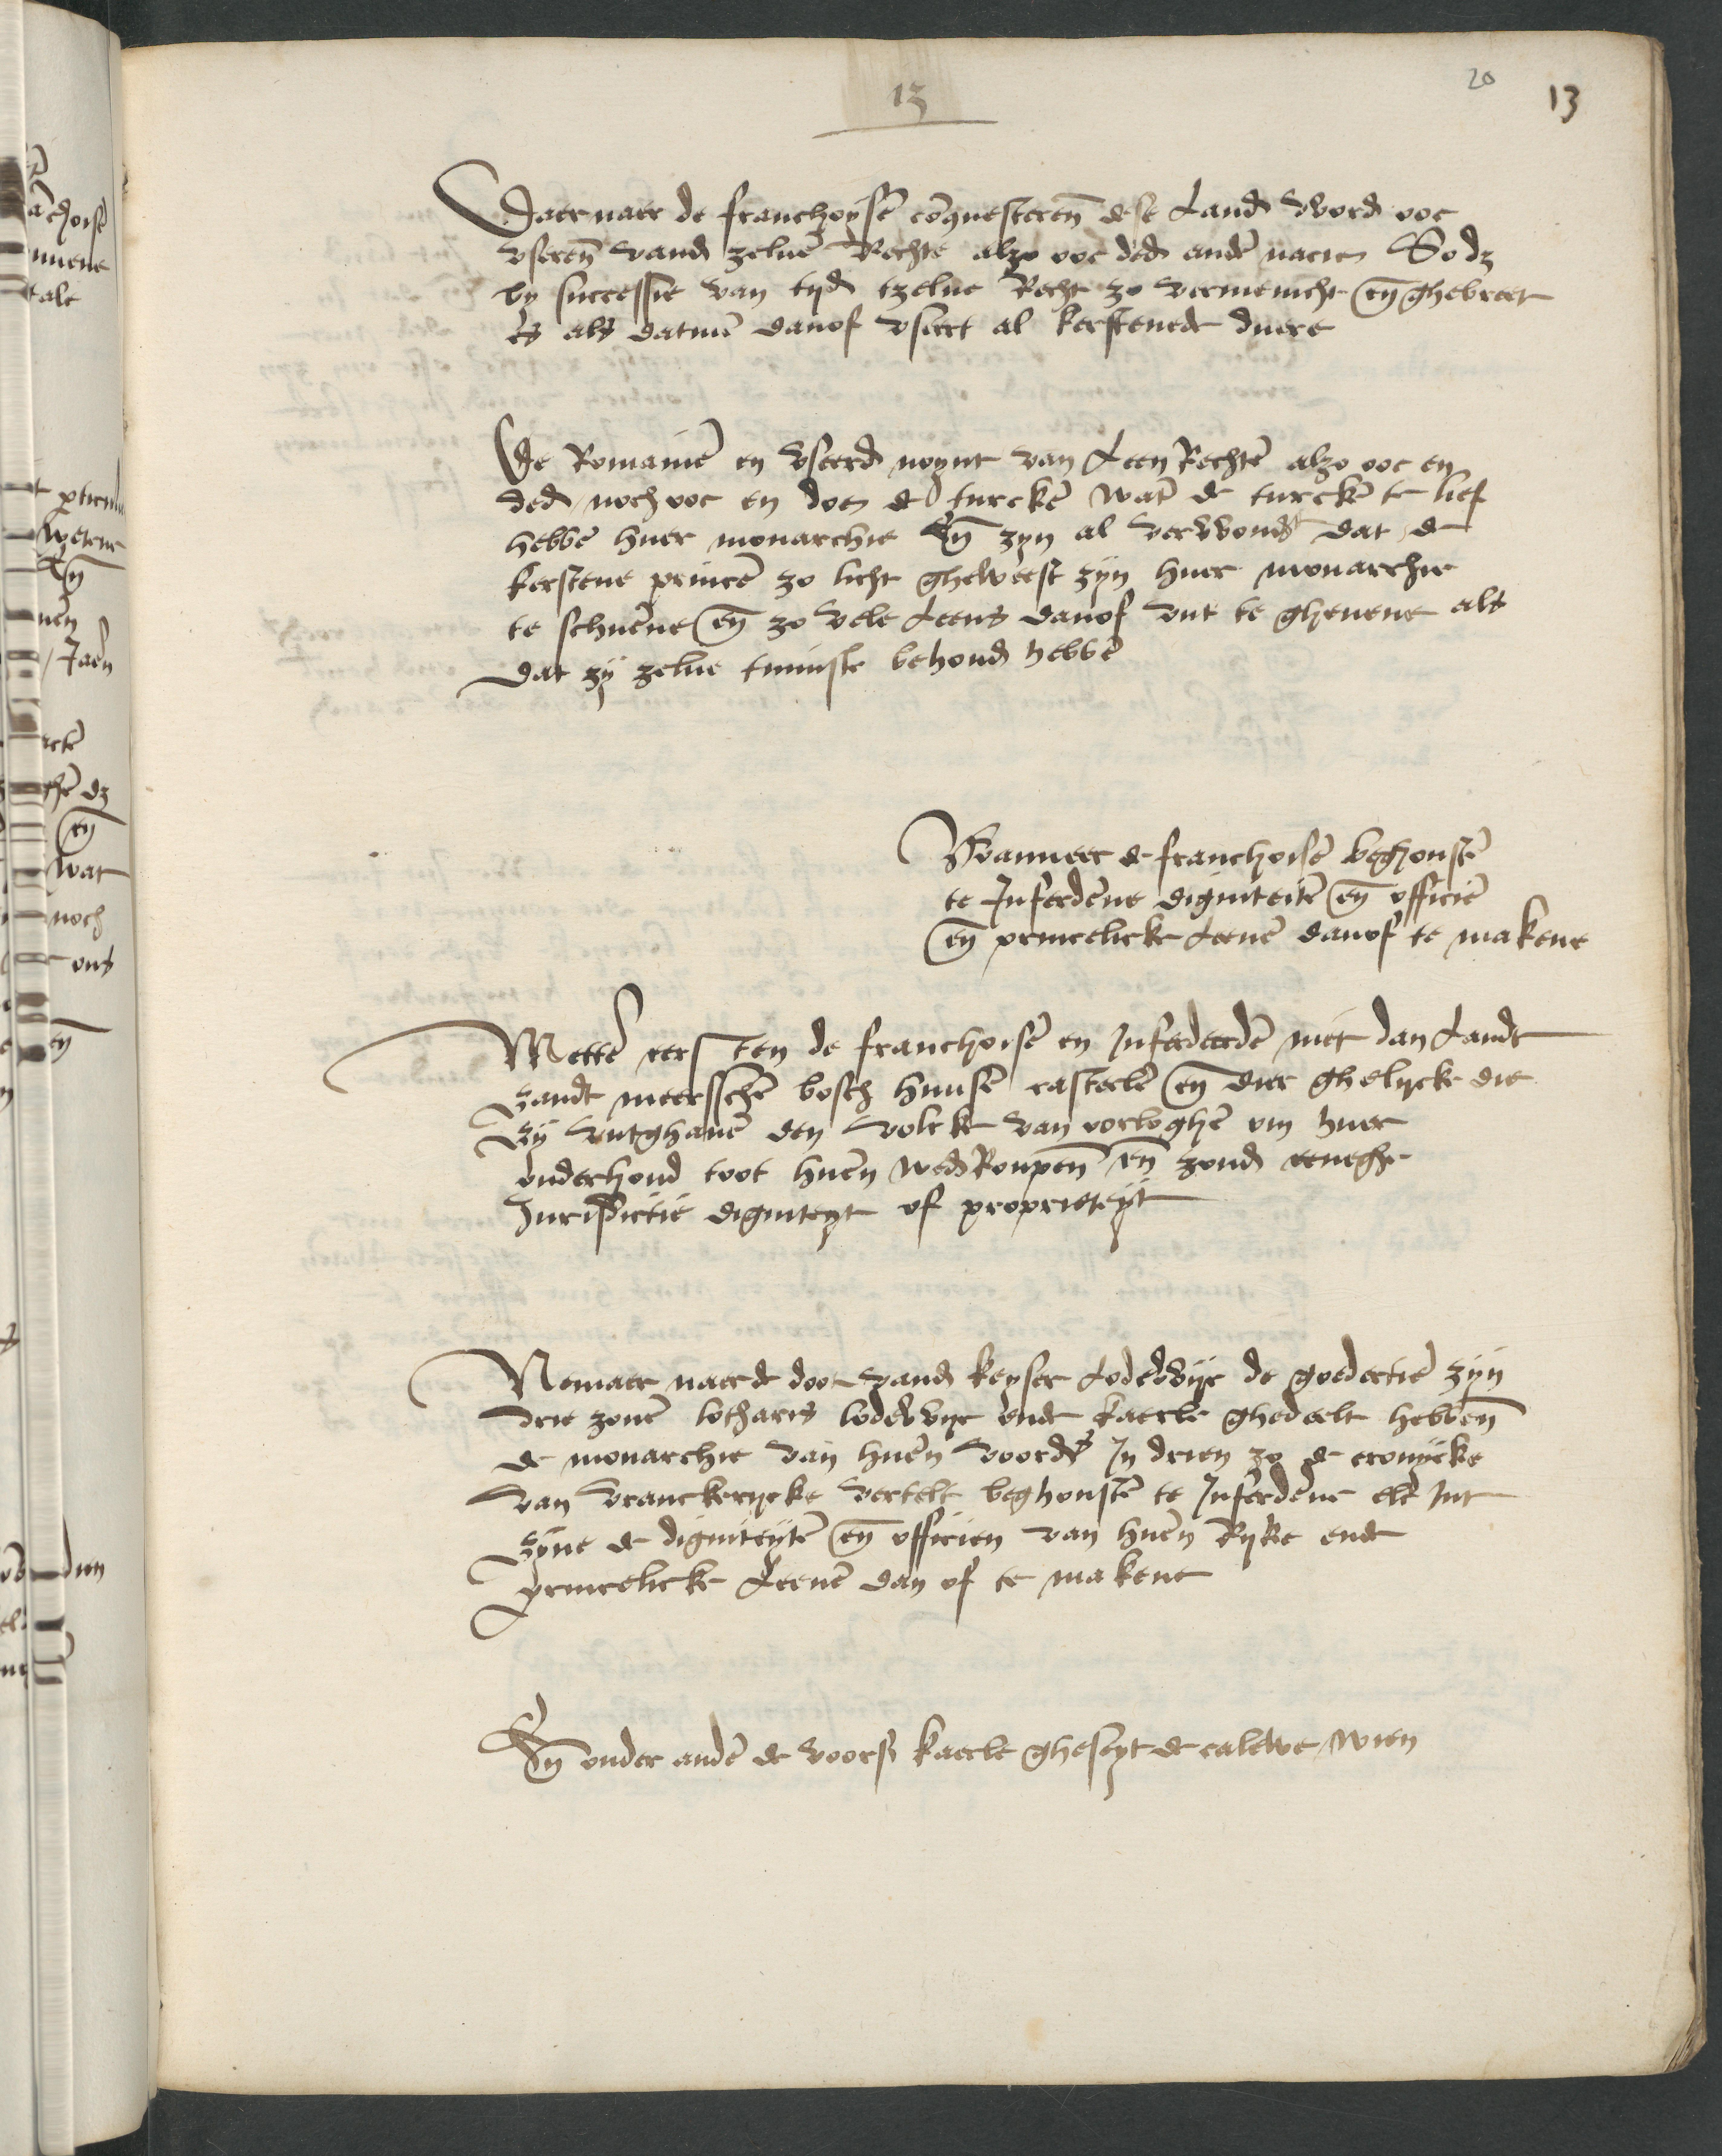 13
20
13
Daer naer de franchoysē cōquesterēn dese Landē word ooc
vserēn vandē zeluē Rechte alzo ooc dedē andē nacie So dz
by successie van tydē tzelue Recht zo vermenicht eñ ghebreet
es als datmē danof vseert al kerstenede duere
De Romainē en vseerdē noynt van Leen Rechtē alzo ooc en
dedē noch ooc en doen de turckē watē de turckē te lief
hebbē huer monarchie Eñ zyn al verwondt dat de
kerstene princē zo licht gheweest zyn huer monarchie
te schuērne eñ zo vele Leens danof vut te gheuene als
dat zy zelue tminste behoudē hebbē
Wanneer de franchoisē beghonstē
te Infeedēne digniteitē eñ officiē
eñ princelicke Leenē danof te makene
Mettē eersten de franchoisē en Infeedeerdē niet dan Landt
zandt meersschē bosch huusē casteelē eñ dier ghelycke die
Zy vutghauē den volcke van oorloghē om huer
onderhoud toot huēn wedRoupēn eñ zondē eeneghe
Jurisdictie digniteyt of proprieteyt
Nemaer naer de doot vandē keyser Lodewyc de goedertiē zyn
drie zonē lotharis lodewyc ende kaerle ghedeelt hebbēn
de monarchie van huēn voordē In drien zo de cronycke
van vranckerycke vertelt beghonstē te Infeedēne elc Int
zyne de digniteytē eñ officien van huēn Rycke ende
princelicke Leenē dan of te makene
Eñ onder andē de voors kaerle gheseyt de calewe wien